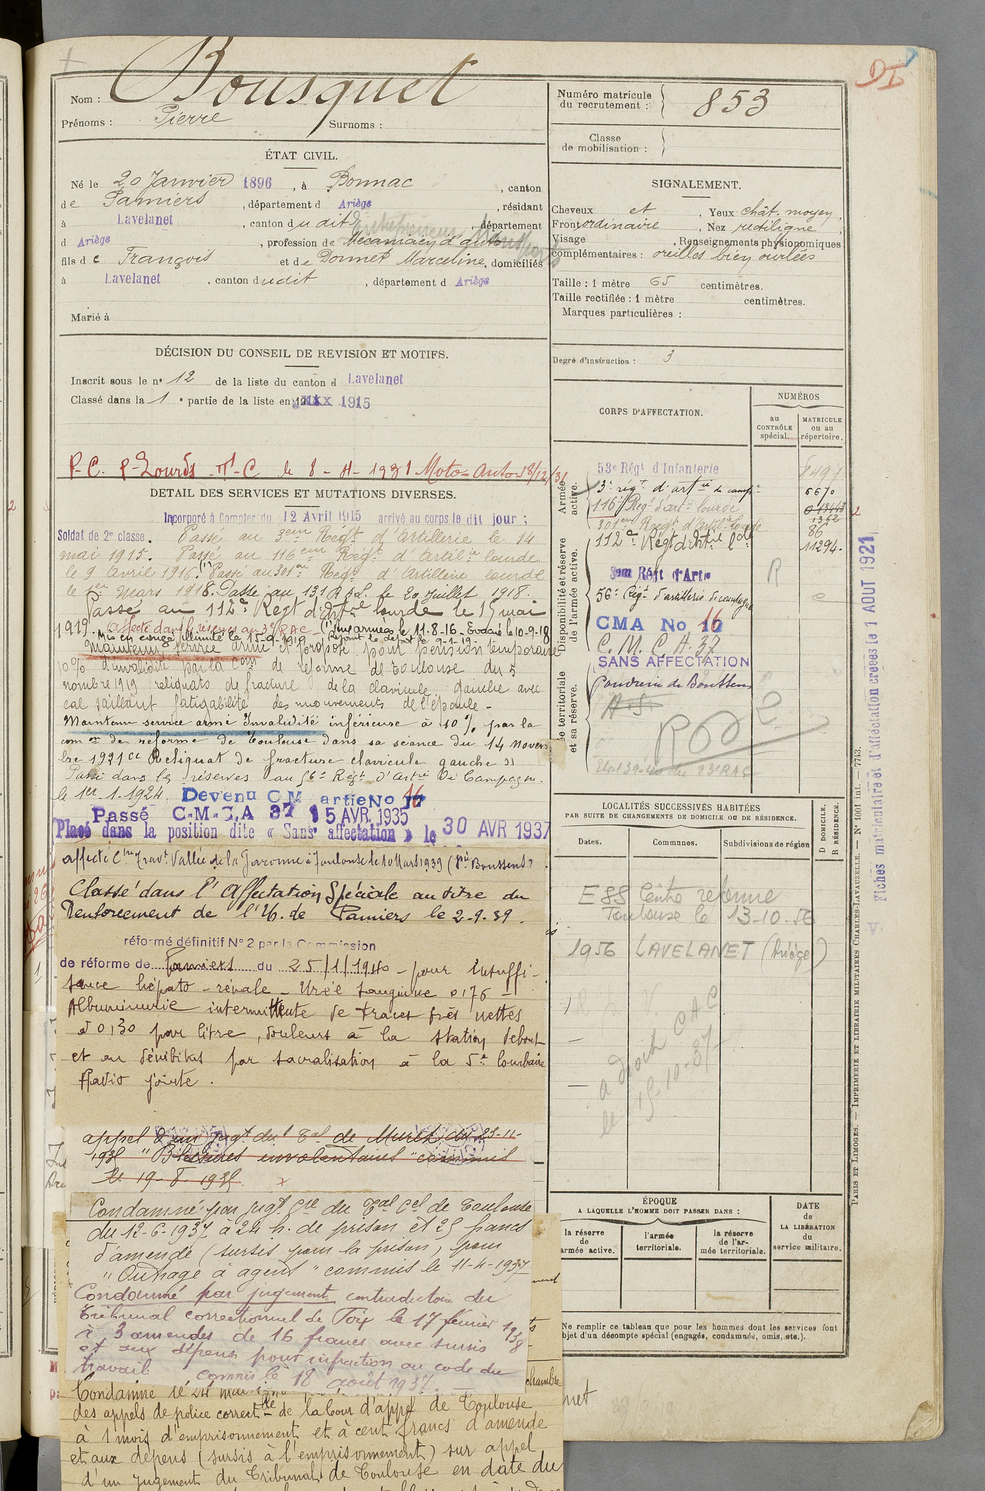 DI
Nom : Bousquet
Prénoms : Pierre Surnoms :
Numéro matricule du recrutement : 853
Classe de mobilisation :
ÉTAT CIVIL.
Né le 20 Janvier 1896, à Bonnac, canton
de Pamiers, département d Ariège, résidant
à Lavelanet, canton du dit, département
d Ariège, profession de Mécanicien d'auto
fils de François et de Bonnet Marceline, domiciliés
à Lavelanet, canton dudit, département d Ariège
Marié à
SIGNALEMENT.
Cheveux et, Yeux chât. moyen,
Front ordinaire, Nez rectiligne
Visage, Renseignements physionomiques
complémentaires : oreilles bien ourlées
Taille : 1 mètre 65 centimètres.
Taille rectifiée : 1 mètre centimètres.
Marques particulières :
Degré d'instruction : 3
DÉCISION DU CONSEIL DE REVISION ET MOTIFS.
Inscrit sous le n° 12 de la liste du canton d Lavelanet
Classé dans la 1e partie de la liste en 1915
P.C. P-Lourds
DÉTAIL DES SERVICES ET MUTATIONS DIVERSES.
Incorporé à Compter du 12 Avril 1915 arrivé au corps le dit jour ;
Soldat de 2e classe. Passé au 3eme Régt d'Artillerie le 14
mai 1915. Passé au 116eme Régt d'Artillie lourde
le 9 Avril 1916. Passé au 301e Régt d'Artillerie lourde
le 1er mars 1918. Passé au 131 le 20 juillet 1918.
Passé au 112e Régt d'Artie lourde le 15 mai
1919.
maintenu service armé et proposé pour pension temporaire
10% d'invalidité par la Com de réforme de Toulouse du 5
novembre 1919 reliquats de fracture de la clavicule gauche avec
cal saillant fatigabilité des mouvements de l'épaule -
Maintenu service armé Invalidité inférieure à 10% par la
com on de réforme de Toulouse dans sa séance du 14 novem
bre 1921 Reliquat de fracture clavicule gauche
Passé dans les réserves au 56e Régt d'Artie de Campagne
le 1er.1.1924. Devenu CM artie No 16
Passé C.M.C.A 37 15 AVR. 1935
Placé dans la position dite « Sans affectation » le 30 AVR 1937
Classé dans l'Affectation Spéciale au titre du
Renforcement de l'Us. de Pamiers le 2-9.39.
réformé définitif N° 2 par la Commission
de réforme de Pamiers du 25/1/1940 - pour insuffi-
sance hépato-rénale - Urée sanguine 0,76 -
Albuminurie intermittente de traces très nettes
à 0,30 par litre, douleurs à la station debout
et au décubitus par sacralisation à la 5e lombaire
Radio jointe.
appel d'un jugt du Tal de Muret du 23-11-
1935 "Blessures involontaires" commis
le 19-8-1935
Condamné par jugt du Tal Cel de Toulouse
du 12-6-1937 à 24 h. de prison et 25 francs
d'amende (sursis pour la prison), pour
"Outrage à agent" commis le 11-4-1937
Condamné par jugement contradictoire du
Tribunal correctionnel de Foix le 17 février 1938
à 3 amendes de 16 francs avec sursis
et aux dépens pour infraction au code du
travail commis le 18 août 1937
Condamné le 24 mai chambre
des appels de police correctlle de la Cour d'appel de Toulouse
à 1 mois d'emprisonnement et à cent francs d'amende
et aux dépens (sursis à l'emprisonnement) sur appel
d'un jugement du Tribunal de Toulouse en date du
CORPS D'AFFECTATION.
NUMÉROS
au CONTRÔLE spécial.
MATRICULE ou au répertoire.
Armée active.
Disponibilité et réserve de l'armée active.
Armée territoriale et sa réserve.
53e Régt d'Infanterie
3e régt d'artie de campe 6670
116e Rég d'art. lourde
301eme Régt d'Artil. lourde
112e Régt d'Artie lde 11294
56e Régt d'artillerie de campagne
CMA No 16
C.M.C.A. 37
SANS AFFECTATION
Poudrerie de Boussens
LOCALITÉS SUCCESSIVES HABITÉES
PAR SUITE DE CHANGEMENTS DE DOMICILE OU DE RÉSIDENCE.
Dates. Communes. Subdivisions de région
D DOMICILE.
R RÉSIDENCE.
E 88 Centre réforme
Toulouse le 13-10-56
1956 LAVELANET (Ariège)
ÉPOQUE
A LAQUELLE L'HOMME DOIT PASSER DANS :
la réserve de l'armée active.
l'armée territoriale.
la réserve de l'armée territoriale.
DATE
DE LA LIBÉRATION
du service militaire.
Ne remplir ce tableau que pour les hommes dont les services font
l'objet d'un décompte spécial (engagés, condamnés, omis, etc.).
Fiches matriculaire et d'affectation créées le 1 AOUT 1921
PARIS ET LIMOGES. — IMPRIMERIE ET LIBRAIRIE MILITAIRES CHARLES-LAVAUZELLE. — N° 1001 int. — 7743.